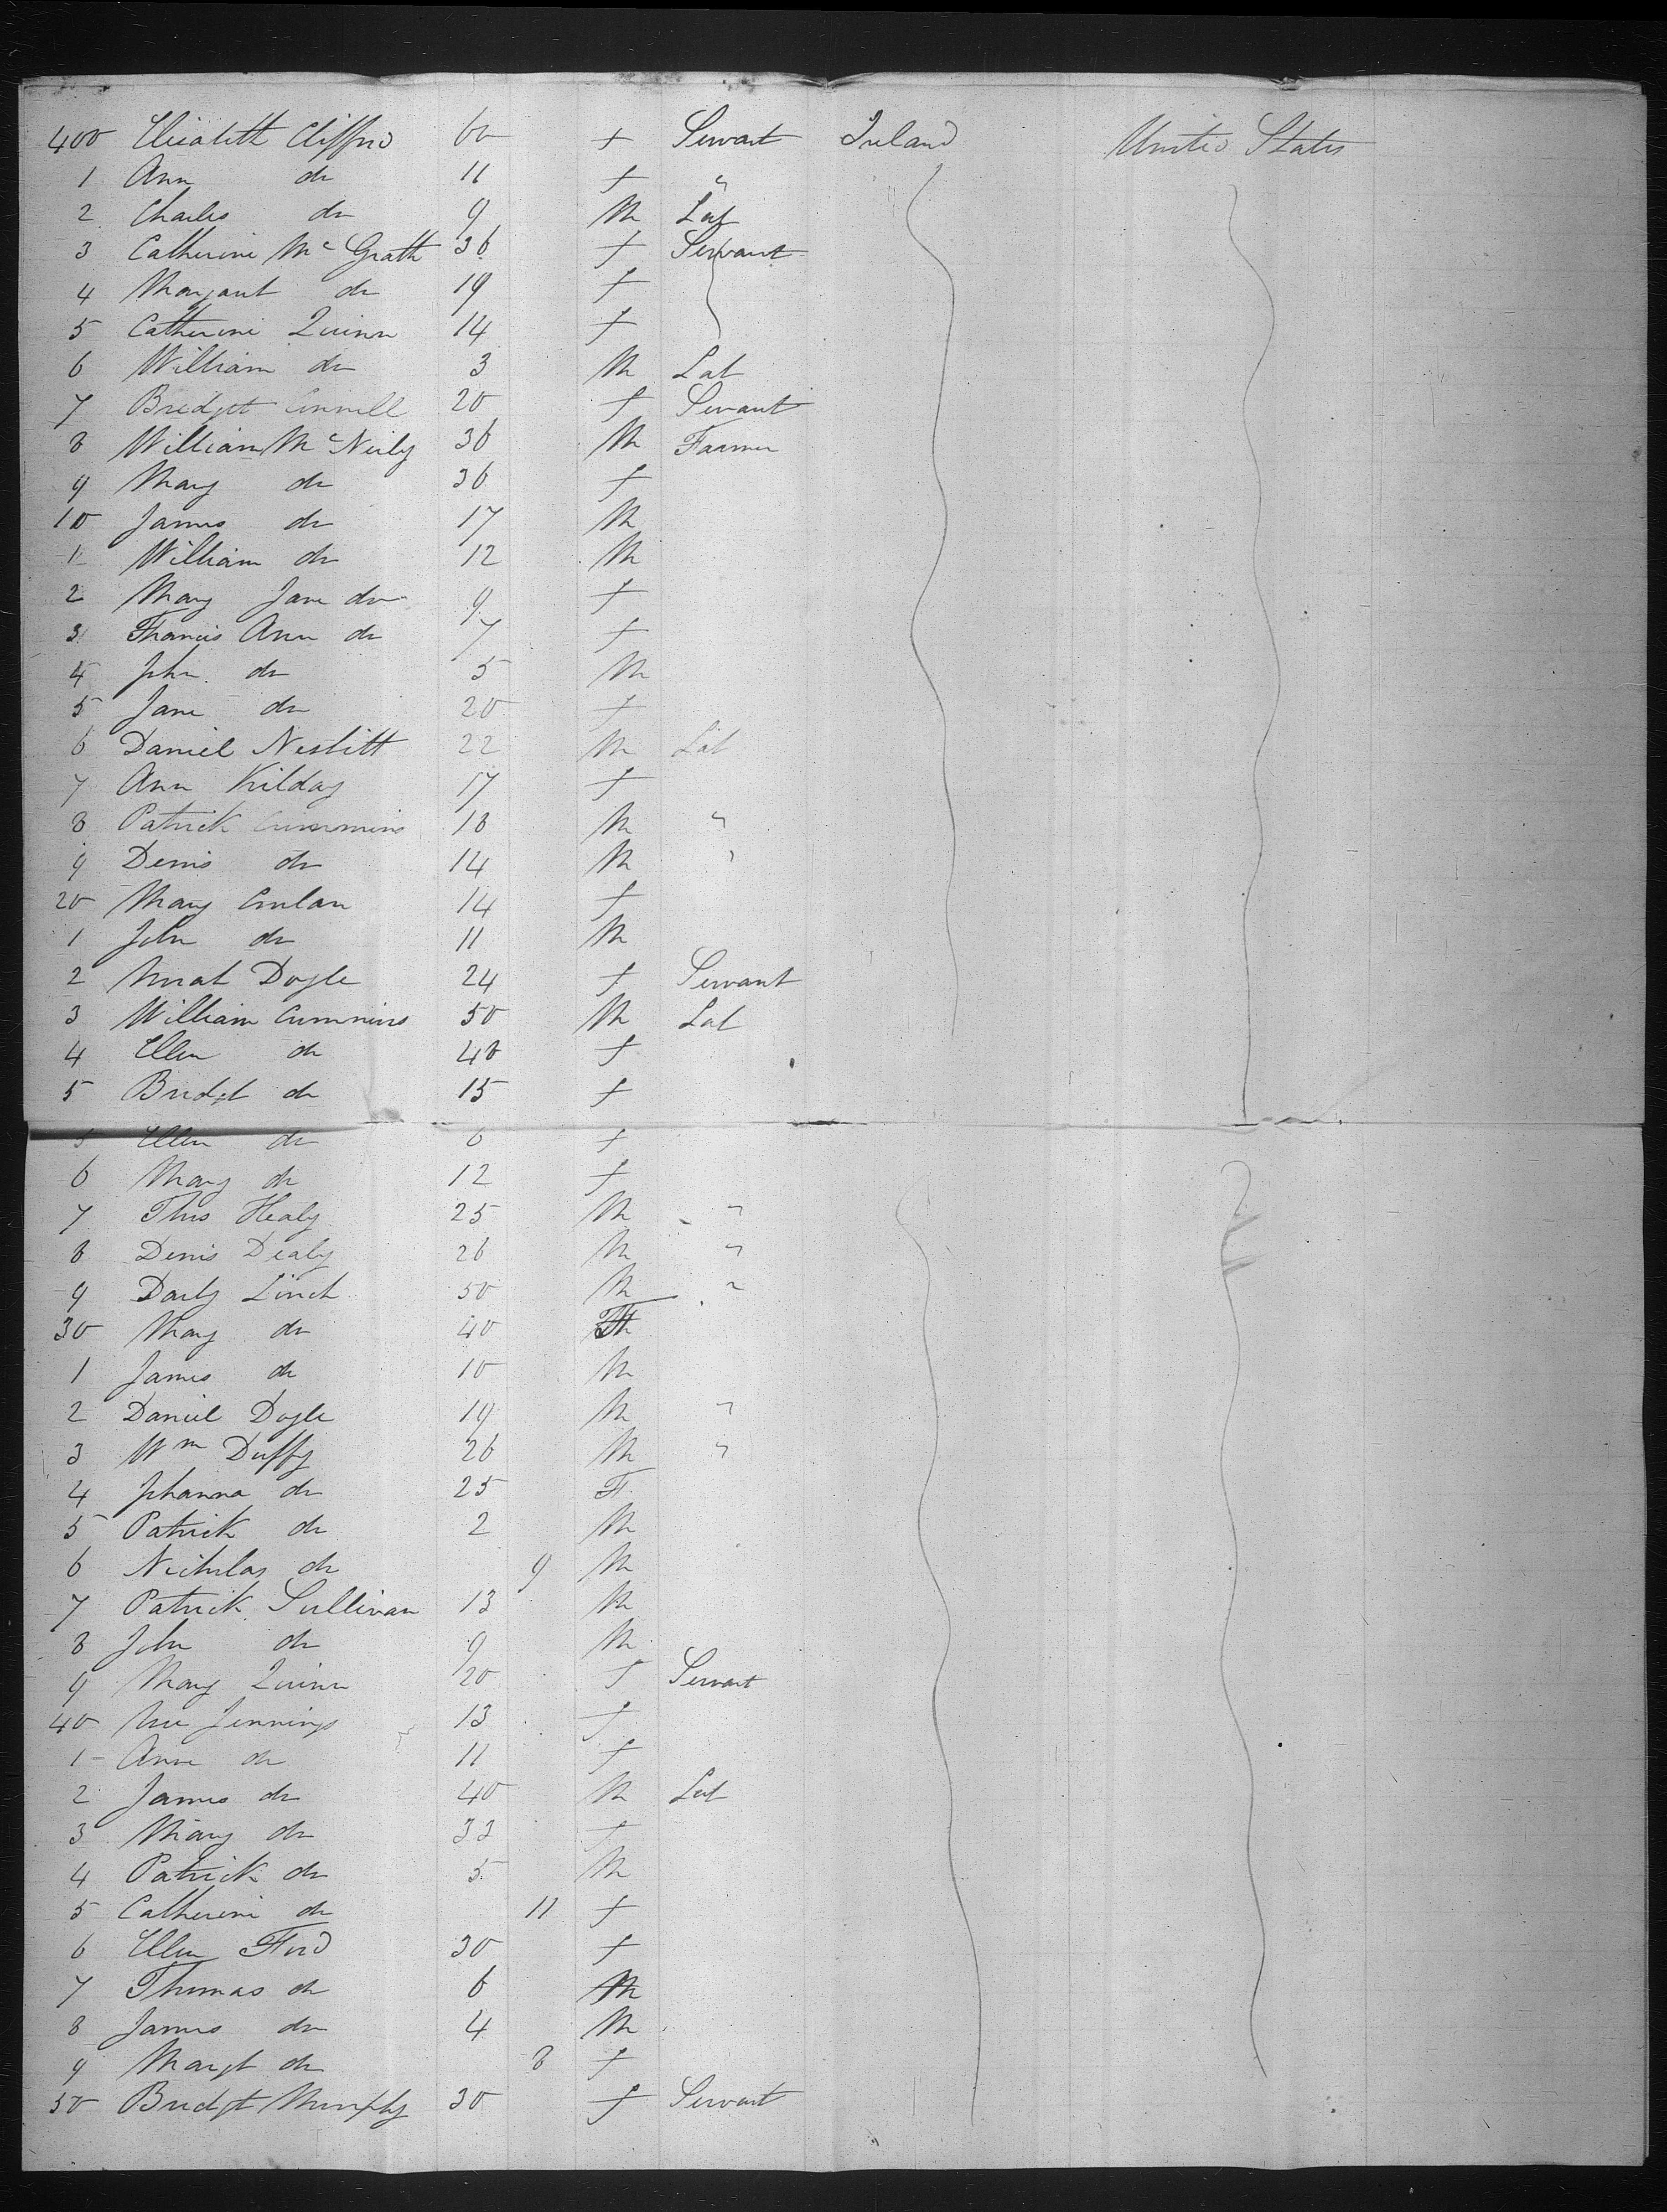 400 Elizabeth Clifford 60 f Servant Ireland United States
1 Ann do 11 f "
2 Charles do 9 M Lab
3 Catherine Mc Grath 36 f Servant
4 Margaret do 19 f
5 Catherine Quinn 14 f
6 William do 3 M Lab
7 Bridget Connell 20 f Servant
8 William Mc Neily 36 M Farmer
9 Mary do 36 f
10 James do 17 M
1 William do 12 M
2 Mary Jane do 9 f
3 Francis Ann do 7 f
4 John do 5 M
5 Jane do 20 f
6 Daniel Nesbitt 22 M Lab
7 Ann Kilday 17 f
8 Patrick Cummins 18 M "
9 Denis do 14 M "
20 Mary Conlan 14 f
1 John do 11 M
2 Doyle 24 f Servant
3 William Cummins 50 M Lab
4 Ellen do 40 f
5 Bridgt do 15 f
5 Ellen do 6 f
6 Mary do 12 f
7 Thos Healy 25 M "
8 Denis Dealy 26 M "
9 Linch 50 M "
30 Mary do 40 F
1 James do 10 M
2 Daniel Doyle 19 M "
3 Wm Duffy 26 M "
4 Johanna do 25 F
5 Patrick do 2 M
6 Nicholas do 9 M
7 Patrick Sullivan 13 M
8 John do 9 M
9 Mary Quinn 20 f Servant
40 Jennings 13 f
1 Ann do 11 f
2 James do 40 M Lab
3 Mary do 33 f
4 Patrick do 5 M
5 Catherine do 11 f
6 Ellen Ford 30 f
7 Thomas do 6 M
8 James do 4 M
9 Margt do 8 f
50 Bridgt Murphy 30 f Servant